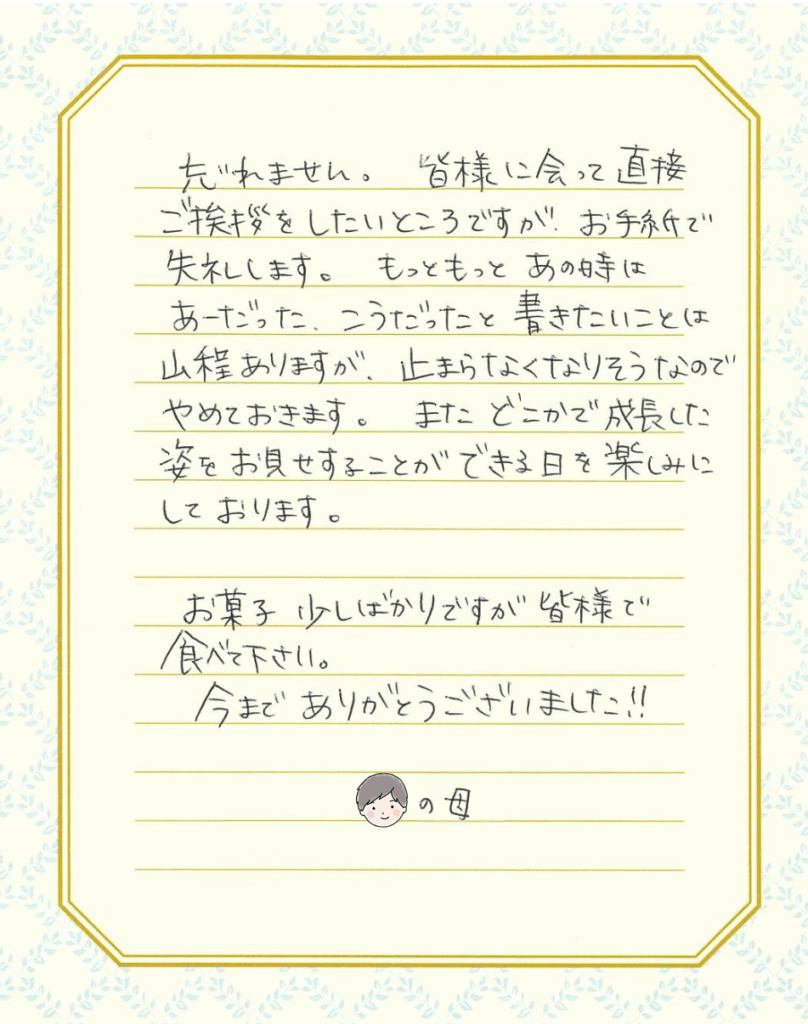 忘れません。 皆様に会って直接
ご挨拶をしたいところですが、お手紙で
失礼します。 もっともっと あの時は
あーだった、こうだったと 書きたいことは
山程ありますが、止まらなくなりそうなので
やめておきます。 また どこかで成長した
姿を お見せすることができる日を 楽しみに
して おります。
お菓子 少しばかりですが 皆様で
食べて下さい。
今まで ありがとうございました!!
の母